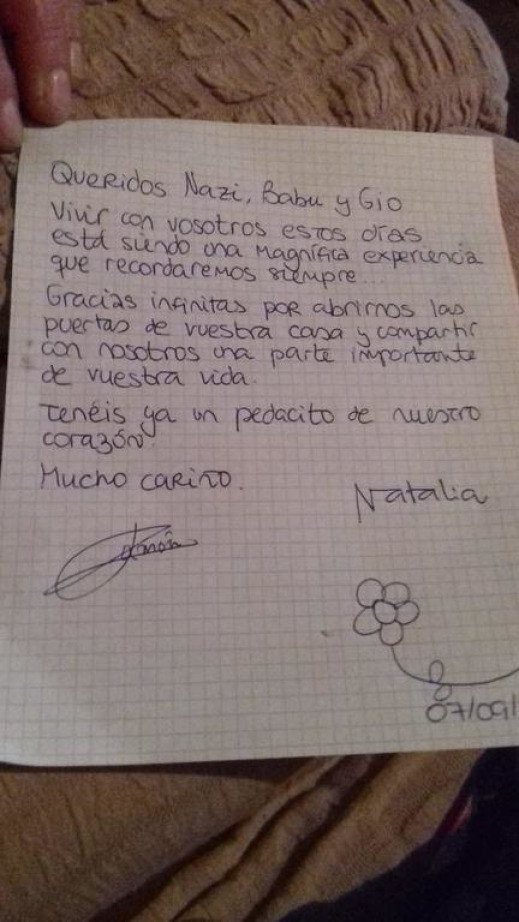 Queridos Nazi, Babu y Gio
Vivir con vosotros estos días
está siendo una magnífica experiencia
que recordaremos siempre...
Gracias infinitas por abrirnos las
puertas de vuestra casa y compartir
con nosotros una parte importante
de vuestra vida.
Tenéis ya un pedacito de nuestro
corazón.
Mucho cariño.
Natalia
07/09/